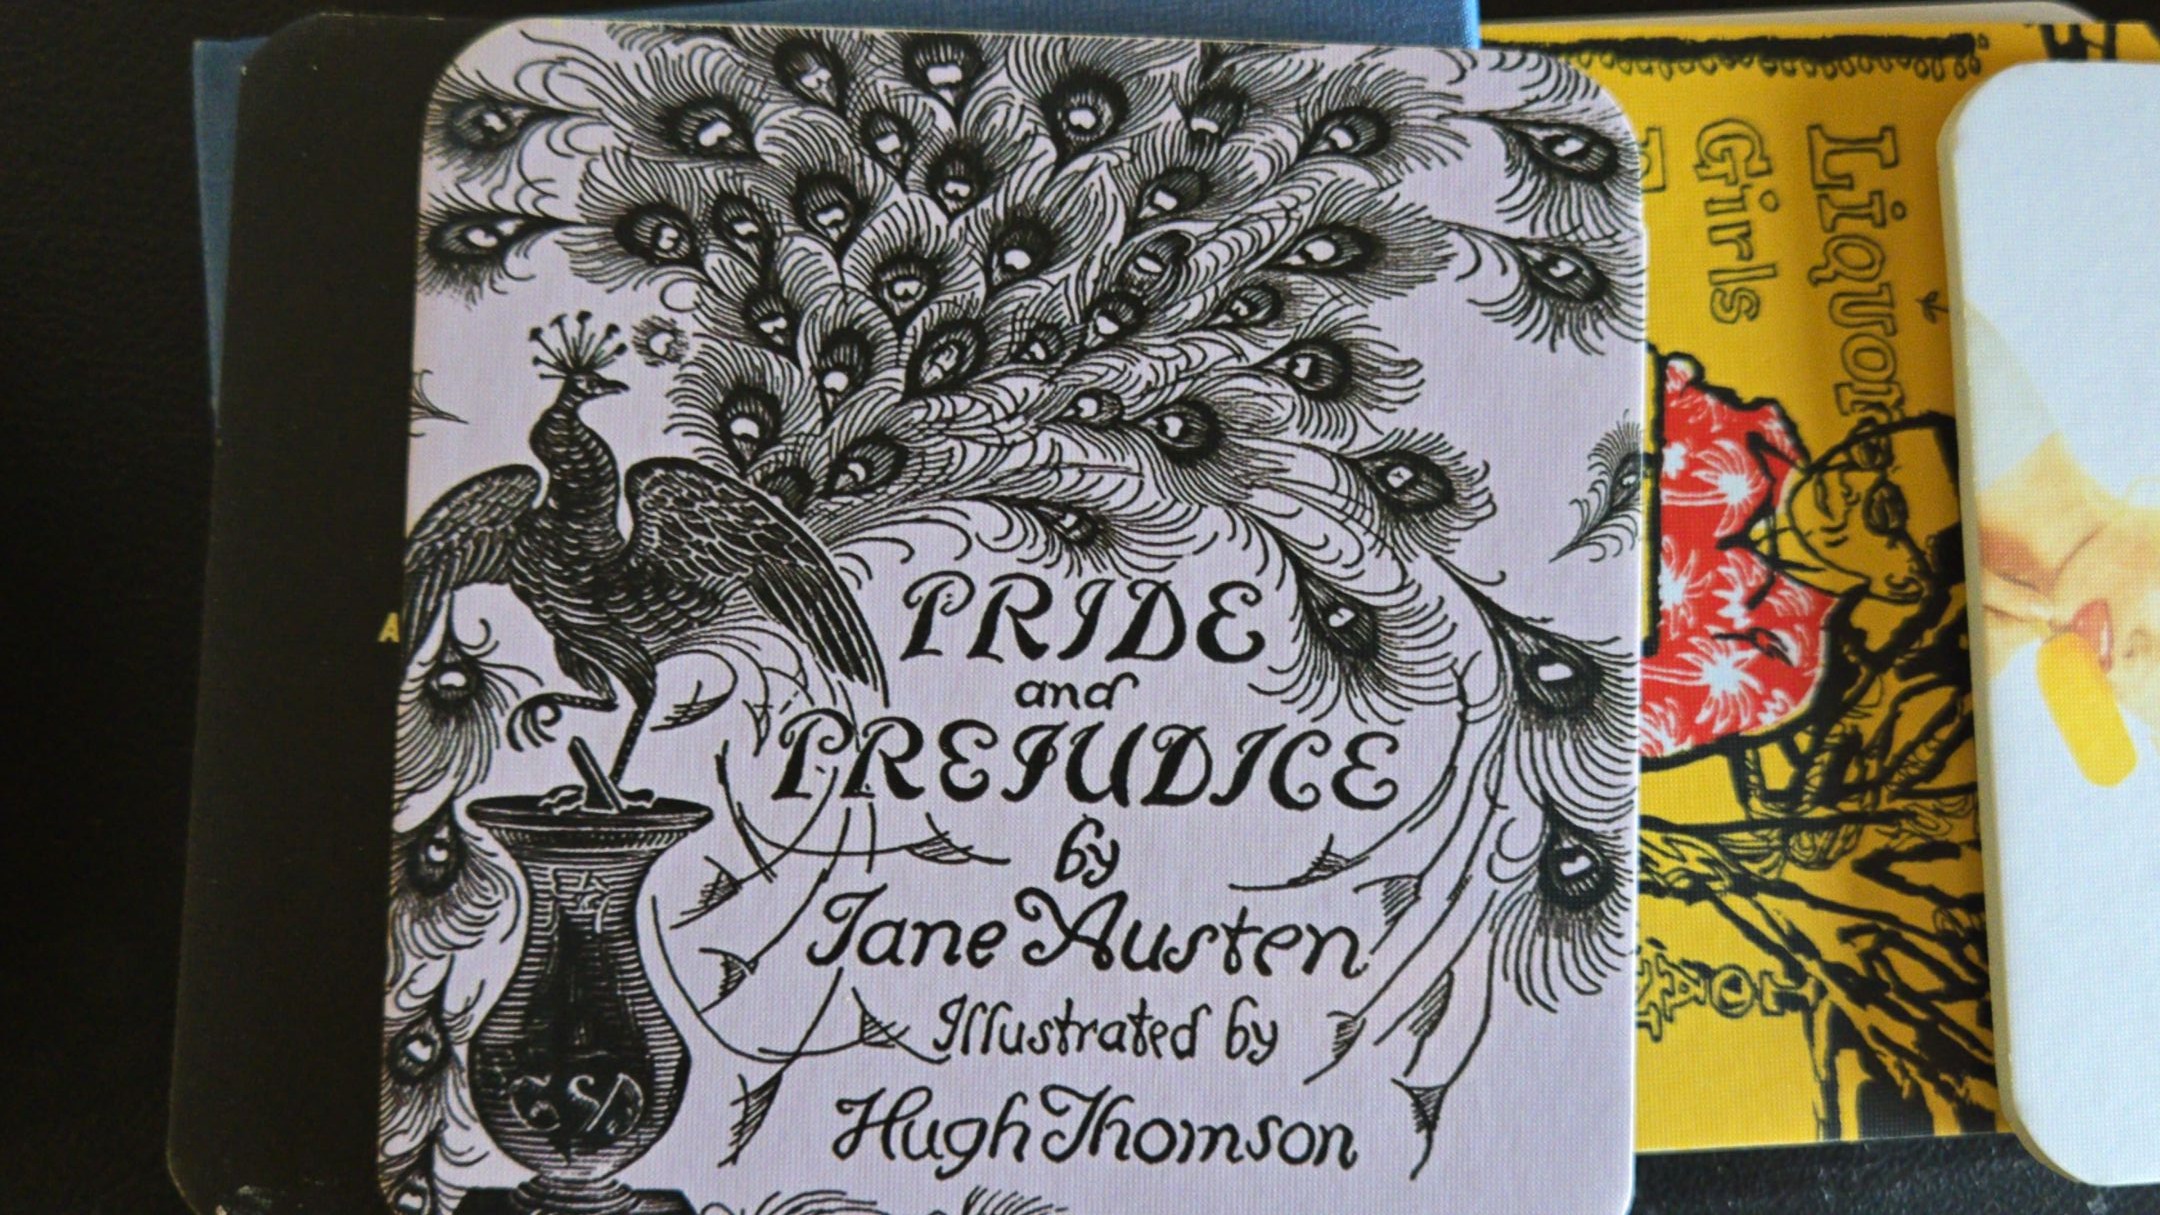 PRIDE
and
PREJUDICE
by
Jane Austen
Illustrated by
Hugh Thomson
Liquor
Girls
A